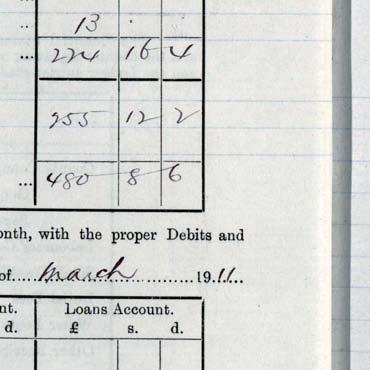 .. 13 . .
... 224 16 4
255 12 2
... 480 8 6
onth, with the proper Debits and
of.....March..........1911...
nt. Loans Account.
d. £ s. d.